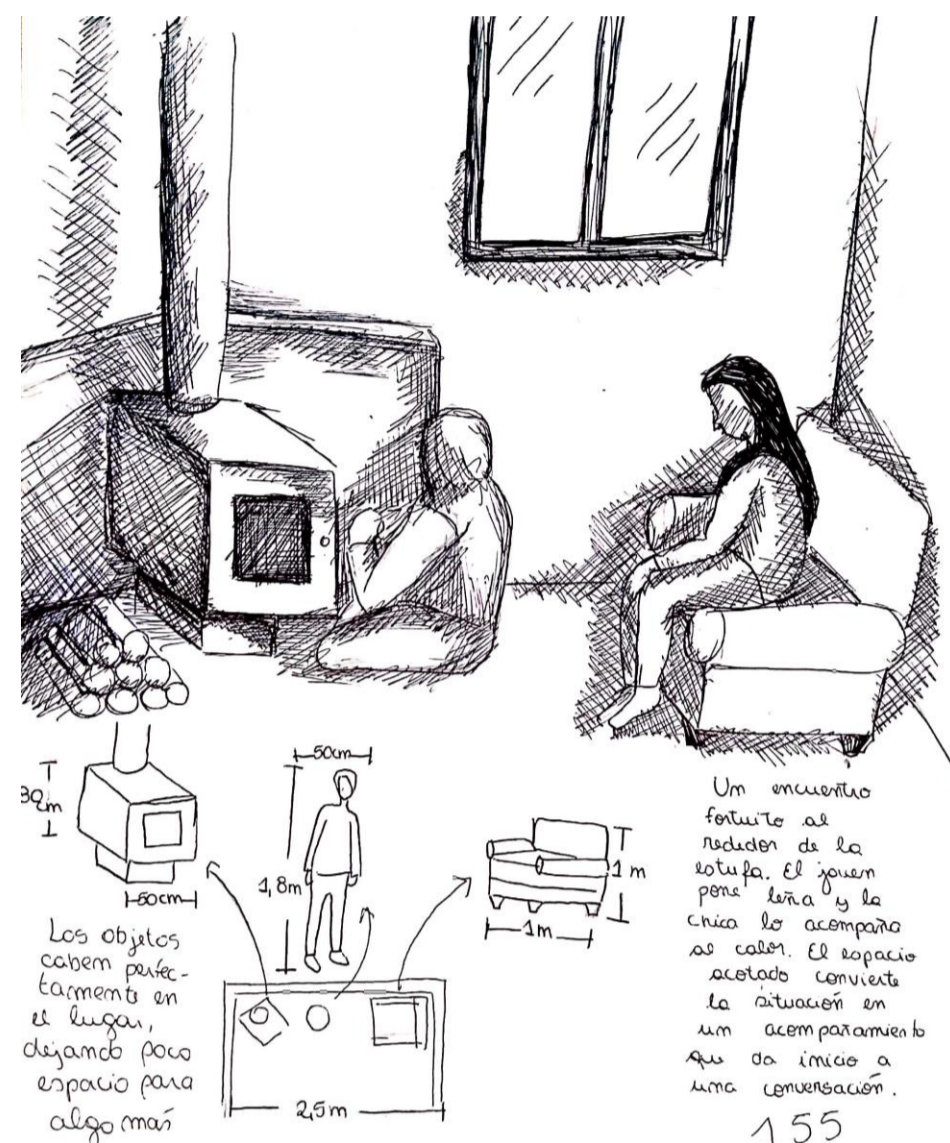 50cm
50cm
1,8m
1m
1m
2,5m
Los objetos
cabem perfec-
tamente en
el lugar,
dejando poco
espacio para
algo más
Un encuentro
fortuito al
rededor de la
estufa. El joven
pone leña y la
chica lo acompaña
al calor. El espacio
acotado convierte
la situación en
un acompañamiento
que da inicio a
una conversación.
155